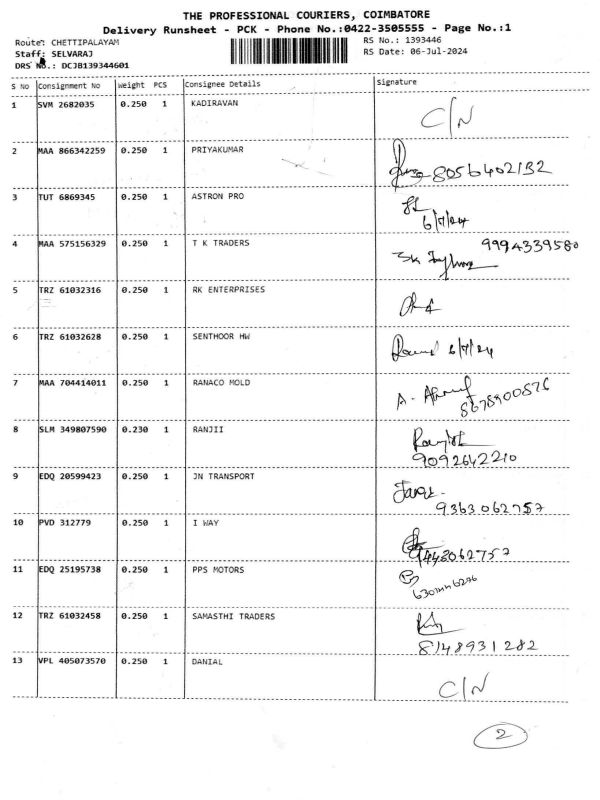 THE PROFESSIONAL COURIERS, COIMBATORE
Delivery Runsheet - PCK - Phone No.:0422-3505555 - Page No.:1
Route: CHETTIPALAYAM RS No.: 1393446
Staff: SELVARAJ RS Date: 06-Jul-2024
DRS No.: DCJB139344601
S No Consignment No Weight PCS Consignee Details Signature
1 SVM 2682035 0.250 1 KADIRAVAN C/N
2 MAA 866342259 0.250 1 PRIYAKUMAR 8056402132
3 TUT 6869345 0.250 1 ASTRON PRO
6/7/24
4 MAA 575156329 0.250 1 T K TRADERS 9994339580
5 TRZ 61032316 0.250 1 RK ENTERPRISES
6 TRZ 61032628 0.250 1 SENTHOOR HW 6/7/24
7 MAA 704414011 0.250 1 RANACO MOLD A.
8675900576
8 SLM 349807590 0.230 1 RANJII
9092642210
9 EDQ 20599423 0.250 1 JN TRANSPORT
9363062757
10 PVD 312779 0.250 1 I WAY
9443062757
11 EDQ 25195738 0.250 1 PPS MOTORS
12 TRZ 61032458 0.250 1 SAMASTHI TRADERS
8148931282
13 VPL 405073570 0.250 1 DANIAL C/N
2